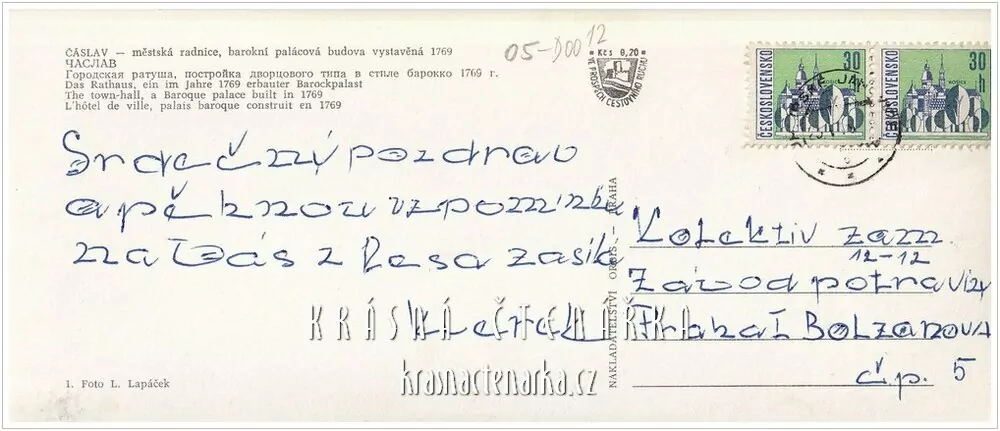 05-D0012
ČÁSLAV — městská radnice, barokní palácová budova vystavěná 1769
ЧАСЛАВ
Городская ратуша, постройка дворцового типа в стиле барокко 1769 г.
Das Rathaus, ein im Jahre 1769 erbauter Barockpalast
The town-hall, a Baroque palace built in 1769
L'hôtel de ville, palais baroque construit en 1769
Kčs 0,20
VE PROSPĚCH CESTOVNÍHO RUCHU
ČESKOSLOVENSKO 30 h KOŠICE
ČESKOSLOVENSKO 30 h KOŠICE
Srdečný pozdrav
a pěknou vzpomínku
na Vás z lesa zasílá
Kolektiv zam.
12-12
Závod potraviny
Praha I Bolzanova
č.p. 5
NAKLADATELSTVÍ ORBIS — PRAHA
KRÁSNÁ ČTENÁŘKA
krasnactenarka.cz
1. Foto L. Lapáček